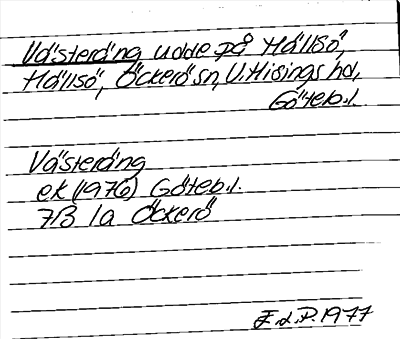 Västeräng udde på Hälsö,
Hälsö, Öckerö sn, V. Hisings hd,
Göteb. l.
Västeräng
ek (1976) Göteb. l.
7B 1a Öckerö
F.d.P. 1977